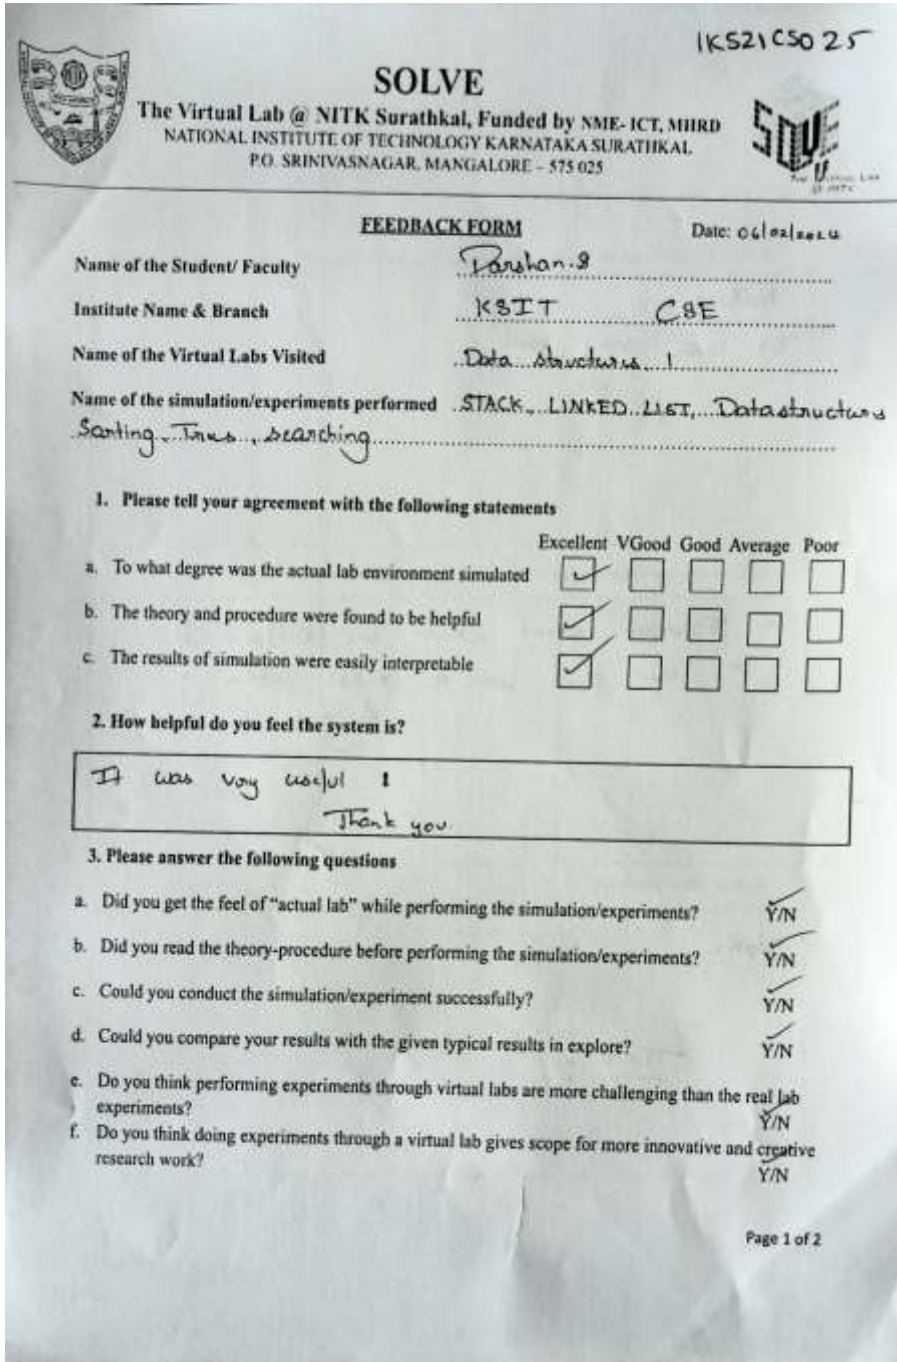 1KS21CS025
SOLVE
The Virtual Lab @ NITK Surathkal, Funded by NME- ICT, MHRD
NATIONAL INSTITUTE OF TECHNOLOGY KARNATAKA SURATHKAL
P.O. SRINIVASNAGAR, MANGALORE – 575 025
SOLVE
FEEDBACK FORM
Date: 06/02/2024
Name of the Student/ Faculty Darshan.S
Institute Name & Branch KSIT CSE
Name of the Virtual Labs Visited Data structures 1
Name of the simulation/experiments performed STACK, LINKED LIST, Datastructures
Sorting, Trees, searching
1. Please tell your agreement with the following statements
Excellent VGood Good Average Poor
a. To what degree was the actual lab environment simulated
b. The theory and procedure were found to be helpful
c. The results of simulation were easily interpretable
2. How helpful do you feel the system is?
It was very useful !
Thank you.
3. Please answer the following questions
a. Did you get the feel of "actual lab" while performing the simulation/experiments? Y/N
b. Did you read the theory-procedure before performing the simulation/experiments? Y/N
c. Could you conduct the simulation/experiment successfully? Y/N
d. Could you compare your results with the given typical results in explore? Y/N
e. Do you think performing experiments through virtual labs are more challenging than the real lab
experiments? Y/N
f. Do you think doing experiments through a virtual lab gives scope for more innovative and creative
research work? Y/N
Page 1 of 2